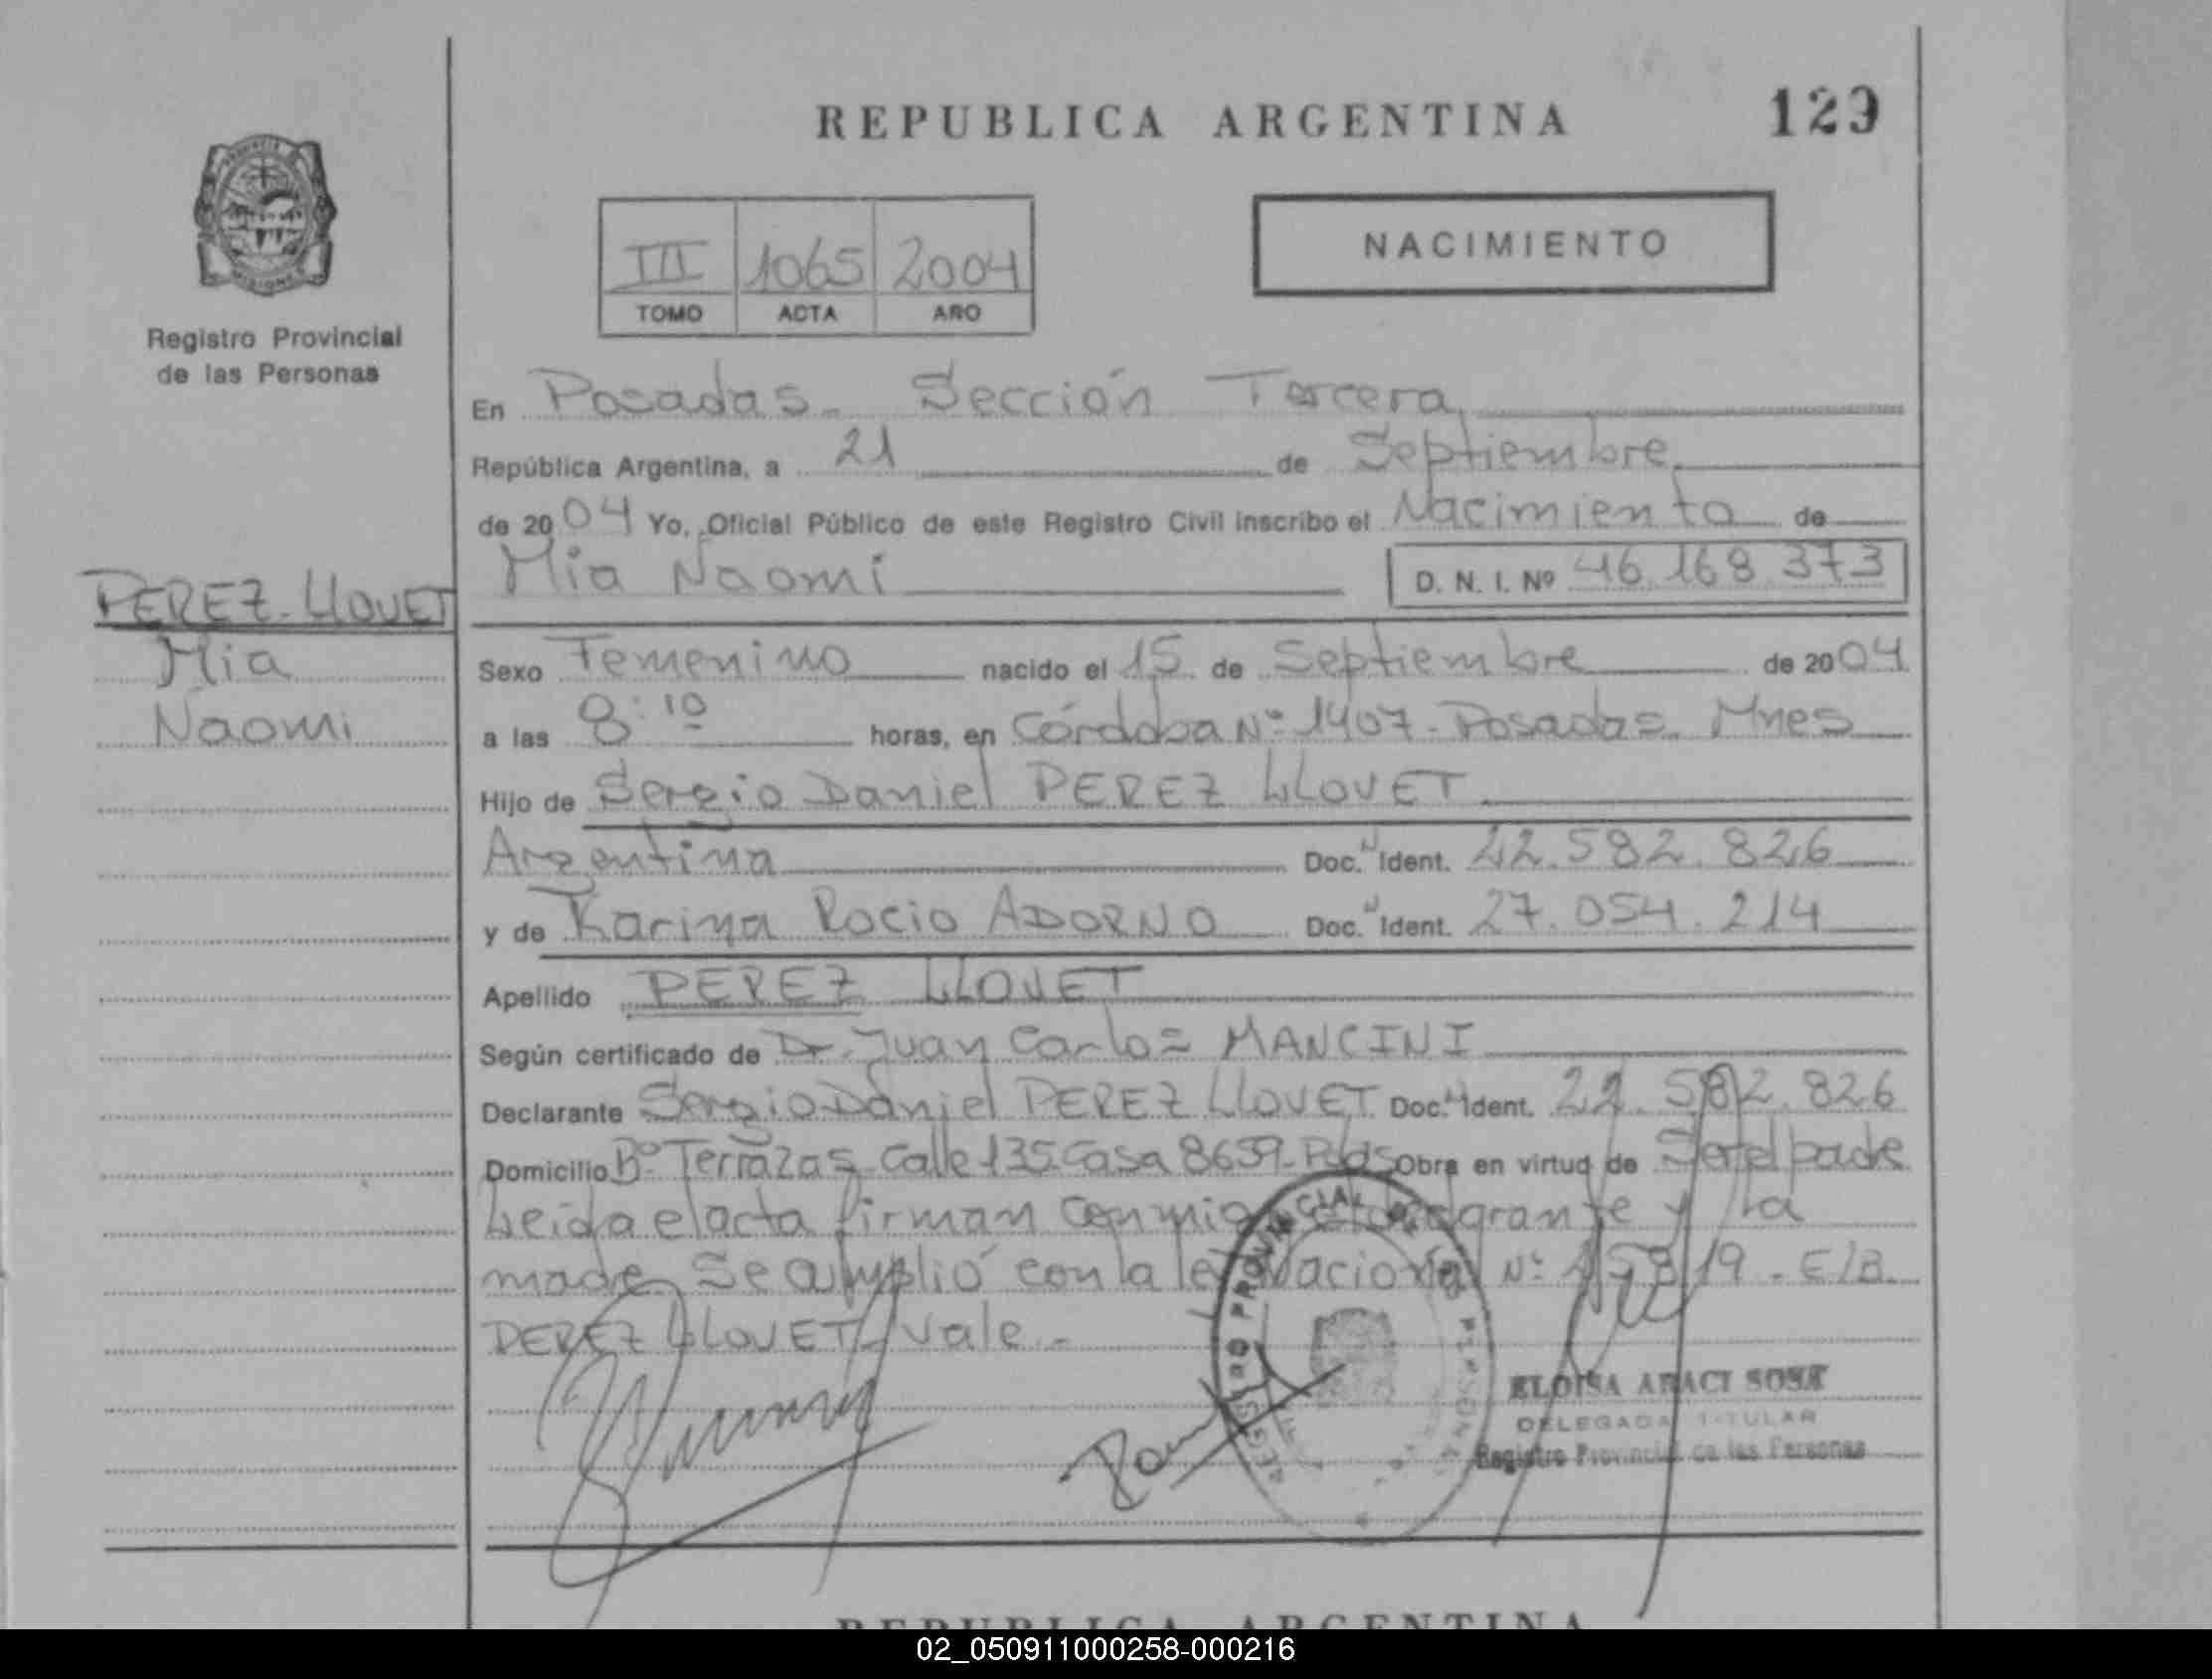 REPUBLICA ARGENTINA
129
Registro Provincial
de las Personas
III 1065 2004
TOMO ACTA AÑO
NACIMIENTO
En Posadas - Sección Tercera
República Argentina, a 21 de Septiembre
de 2004 Yo, Oficial Público de este Registro Civil inscribo el Nacimiento de
Mia Naomi D. N. I. Nº 46.168.373
PEREZ-LLOVET
Mia
Naomi
Sexo Femenino nacido el 15 de Septiembre de 2004
a las 8:10 horas, en Córdoba Nº 1407 - Posadas. Mnes
Hijo de Sergio Daniel PEREZ LLOVET
Argentina Doc. Ident. 22.582.826
y de Karina Rocio ADORNO Doc. Ident. 27.054.214
Apellido PEREZ LLOVET
Según certificado de Dr. Juan Carlos MANCINI
Declarante Sergio Daniel PEREZ LLOVET Doc. Ident. 22.582.826
Domicilio Bº Terrazas Calle 135 Casa 8659 - Pdas Obra en virtud de Ser el padre
Leida el acta firman conmigo y la
madre Se cumplió con la ley Nacional Nº E/B.
PEREZ LLOVET - Vale -
REGISTRO PROVINCIAL DE LAS PERSONAS
ELOISA ARACI SOSA
DELEGADA TITULAR
Registro Provincial de las Personas
REPUBLICA ARGENTINA
02_050911000258-000216